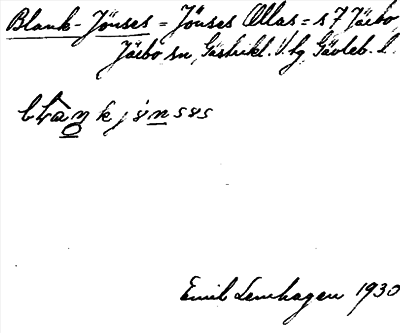 Blank-Jönses = Jönses Ollas = s 7 Järbo
Järbo sn, Gästrikl. V. lg Gävleb. l.
Emil Lemhagen 1930